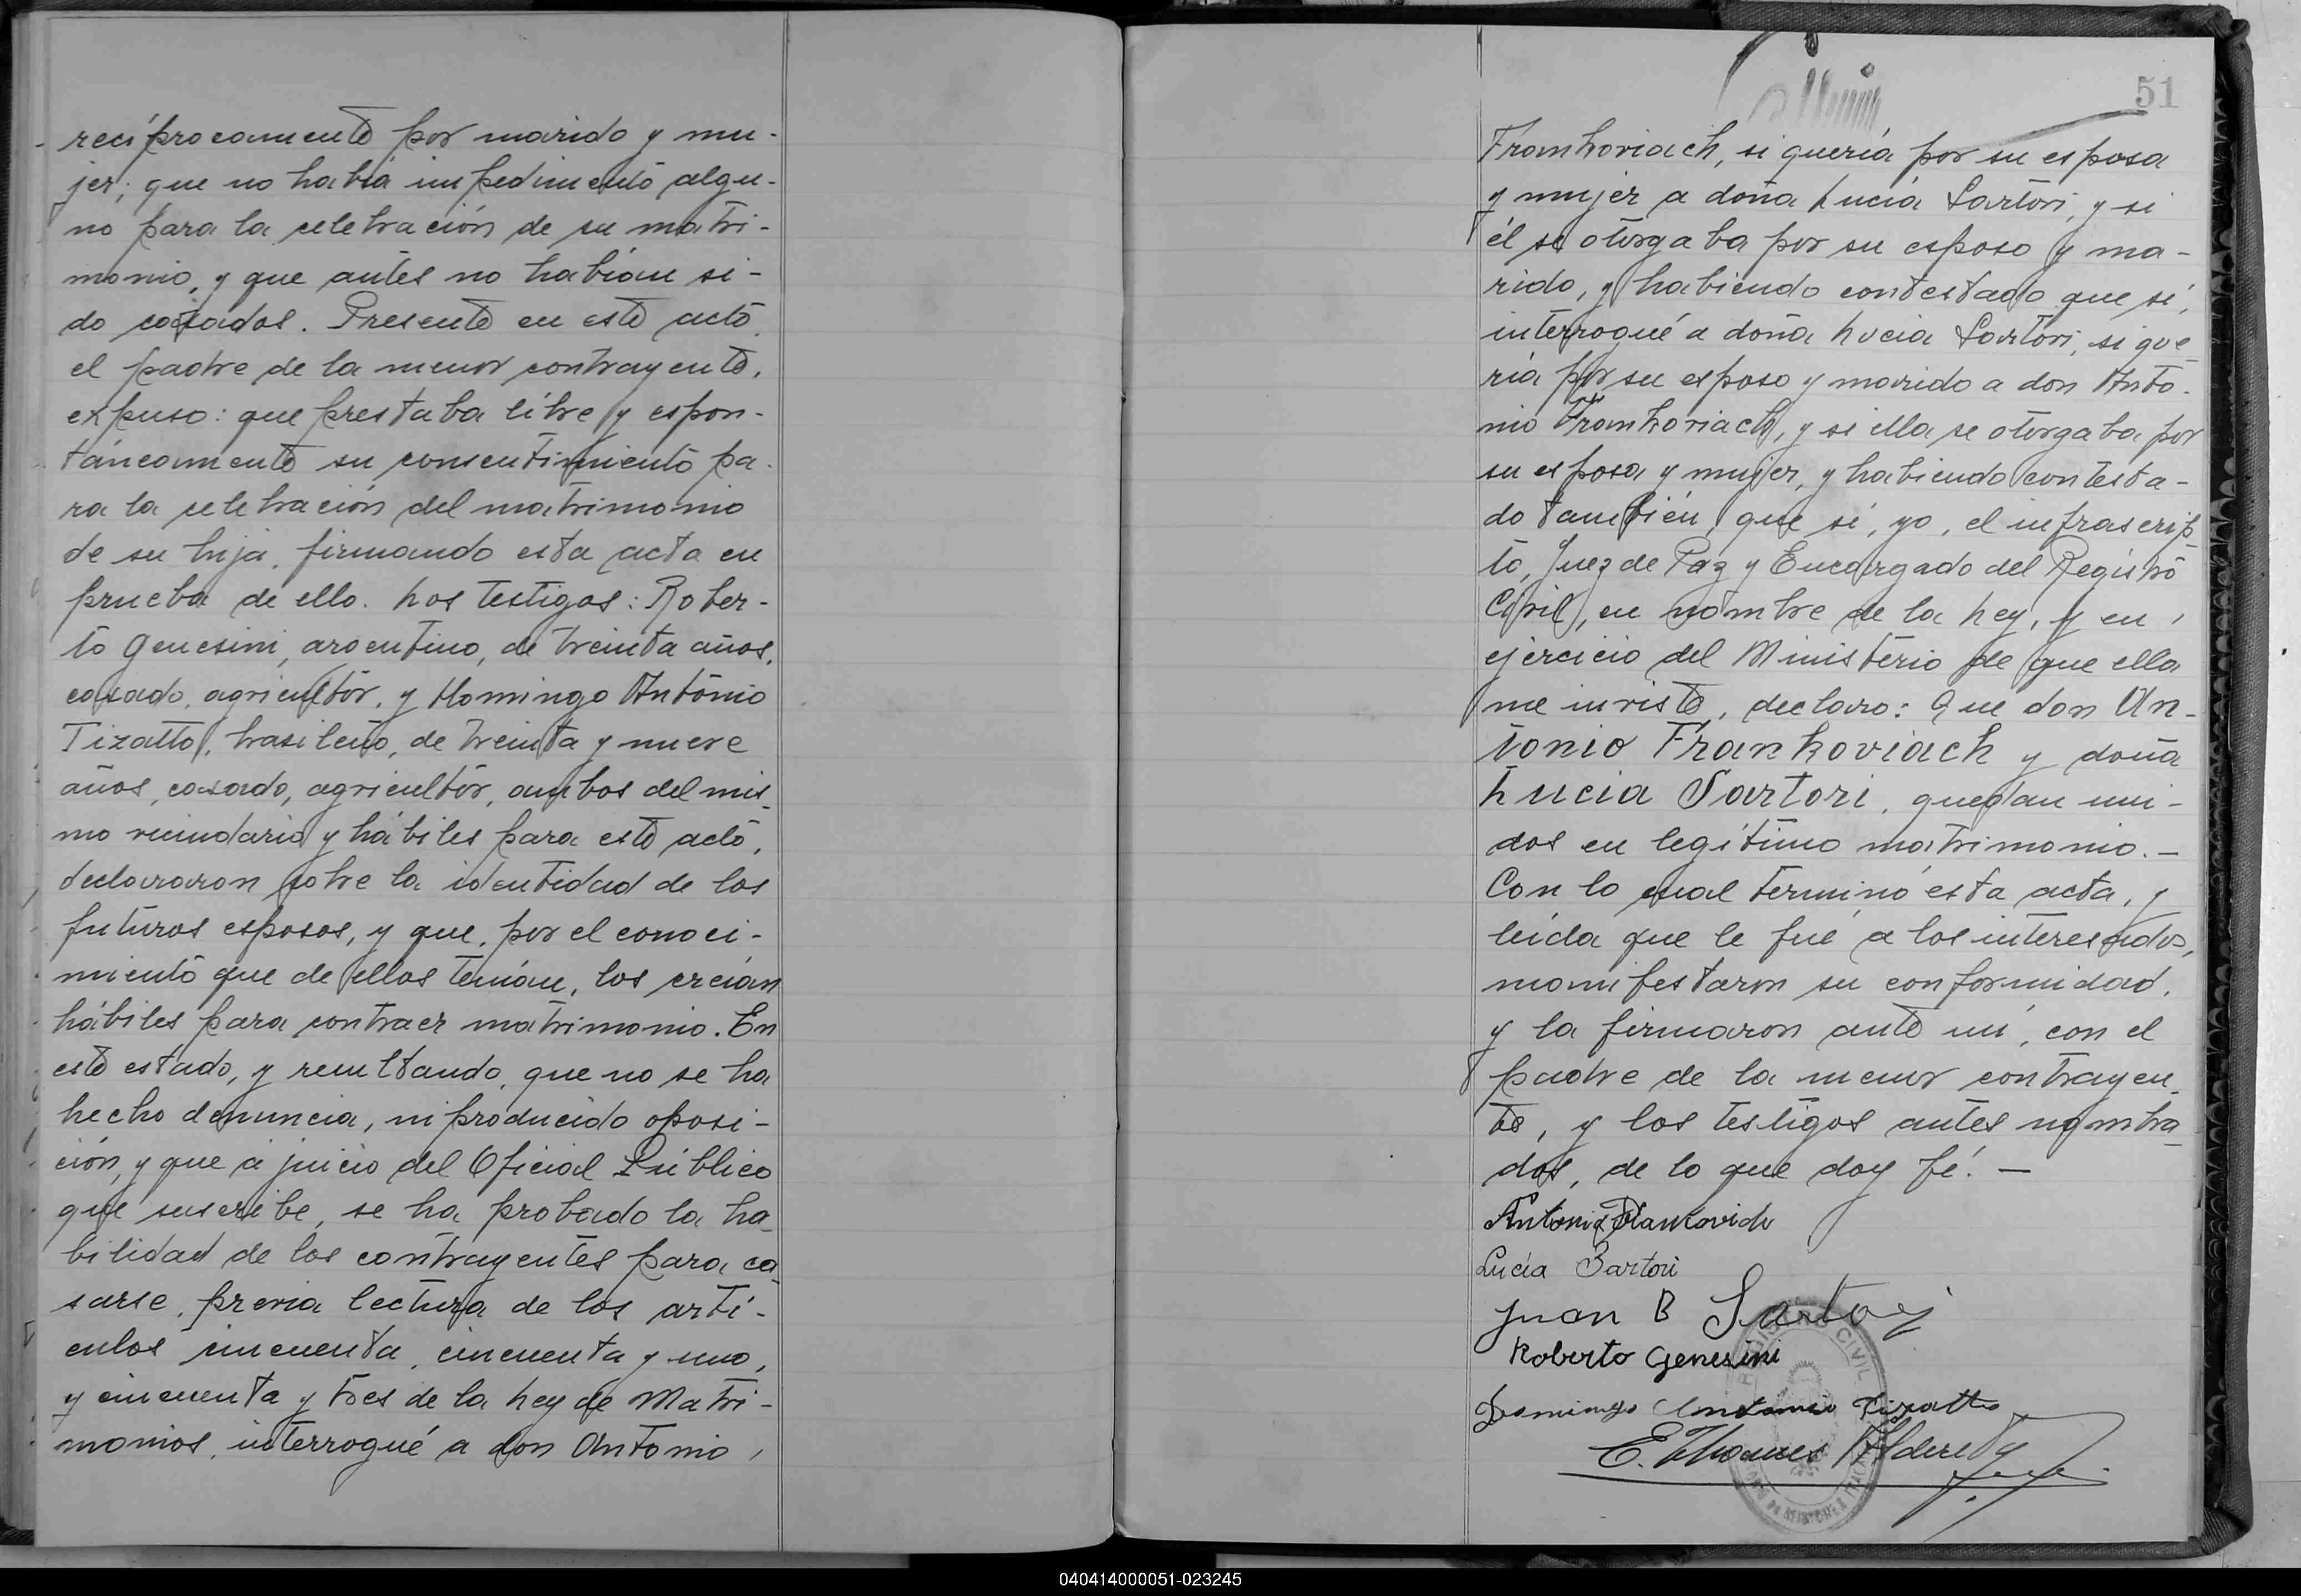 recíprocamente por marido y mu-
jer; que no había impedimento algu-
no para la celebración de su matri-
monio, y que antes no habían si-
do casados. Presente en este acto,
el padre de la menor contrayente,
expuso: que prestaba libre y espon-
táneamente su consentimiento pa-
ra la celebración del matrimonio
de su hija, firmando esta acta en
prueba de ello. Los testigos: Rober-
to Genesini, argentino, de treinta años,
casado, agricultor, y Domingo Antonio
Tizatto, brasileño, de treinta y nueve
años, casado, agricultor, ambos del mis-
mo vecindario y hábiles para este acto,
declararon sobre la identidad de los
futuros esposos, y que, por el conoci-
miento que de ellos tenían, los creían
hábiles para contraer matrimonio. En
este estado, y resultando, que no se ha
hecho denuncia, ni producido oposi-
ción, y que a juicio del Oficial Público
que suscribe, se ha probado la ha-
bilidad de los contrayentes para ca-
sarse, previa lectura de los artí-
culos cincuenta, cincuenta y uno,
y cincuenta y tres de la Ley de Matri-
monios, interrogué a don Antonio,
51
Frankoviach, si quería por su esposa
y mujer a doña Lucía Sartori, y si
él se otorgaba por su esposo y ma-
rido, y habiendo contestado que sí,
interrogué a doña Lucia Sartori, si que-
ría por su esposo y marido a don Anto-
nio Frankoviach, y si ella se otorgaba por
su esposa y mujer, y habiendo contesta-
do también, que sí, yo, el infrascrip-
to, Juez de Paz y Encargado del Registro
Civil, en nombre de la Ley, y en
ejercicio del Ministerio de que ella
me inviste, declaro: Que don An-
tonio Frankoviach y doña
Lucia Sartori, quedan uni-
dos en legítimo matrimonio.—
Con lo cual terminó esta acta, y
leída que le fué a los interesados,
manifestaron su conformidad,
y la firmaron ante mí, con el
padre de la menor contrayen-
te, y los testigos antes nombra-
dos, de lo que doy fé.—
Antonio Frankovich
Lucía Sartori
Juan B Sartori
Roberto Genesini
Domingo Antonio Tizatto
E. Thomes Alderete
REGISTRO CIVIL
040414000051-023245